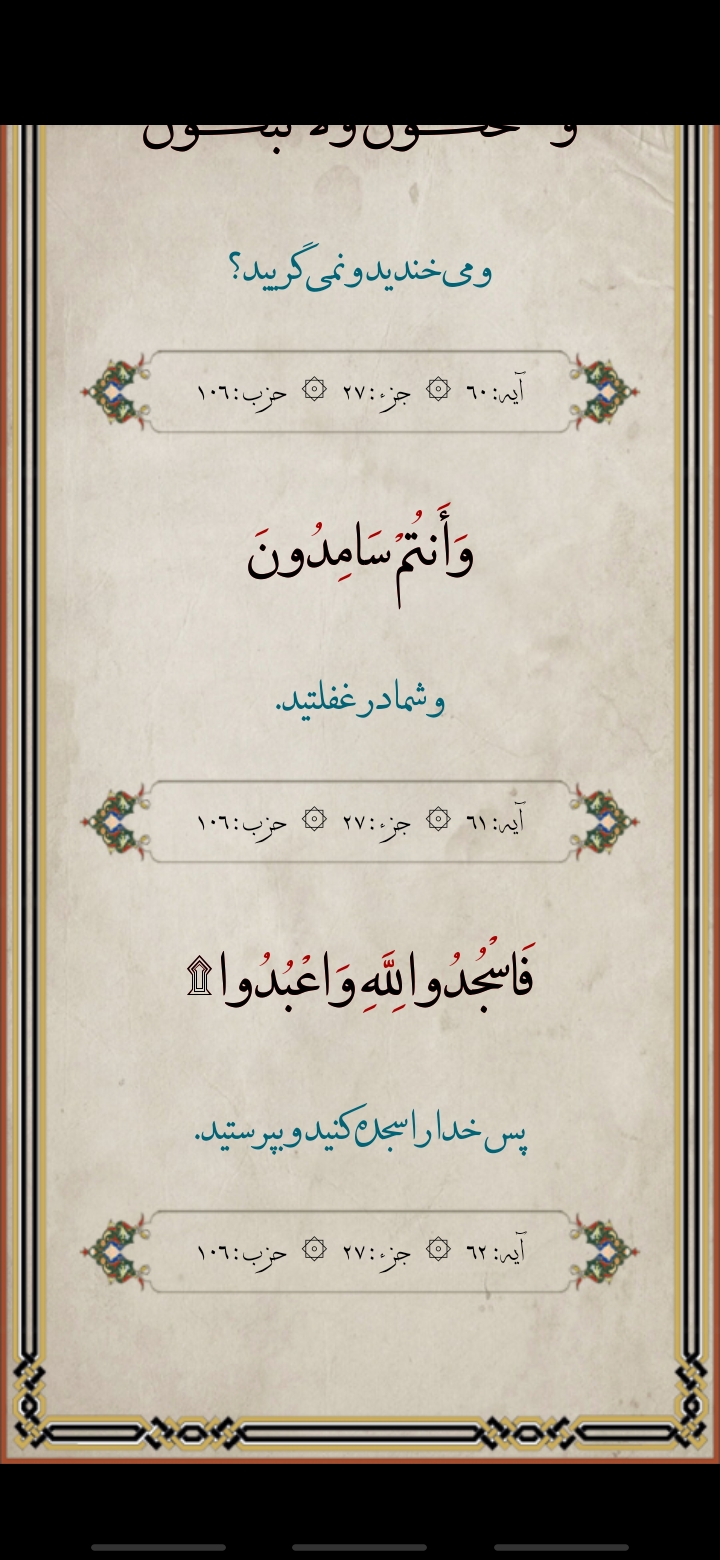 ولا
و می‌خندید و نمی‌گریید؟
آیه: ٦٠ ۞ جزء: ٢٧ ۞ حزب: ١٠٦
وَأَنتُمْ سَامِدُونَ
و شما در غفلتید.
آیه: ٦١ ۞ جزء: ٢٧ ۞ حزب: ١٠٦
فَاسْجُدُوا لِلَّهِ وَاعْبُدُوا ۩
پس خدا را سجده کنید و بپرستید.
آیه: ٦٢ ۞ جزء: ٢٧ ۞ حزب: ١٠٦